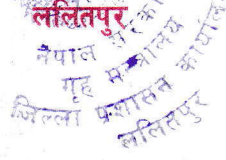 ललितपुर
नेपाल सरकार
गृह मन्त्रालय
जिल्ला प्रशासन कार्यालय
ललितपुर